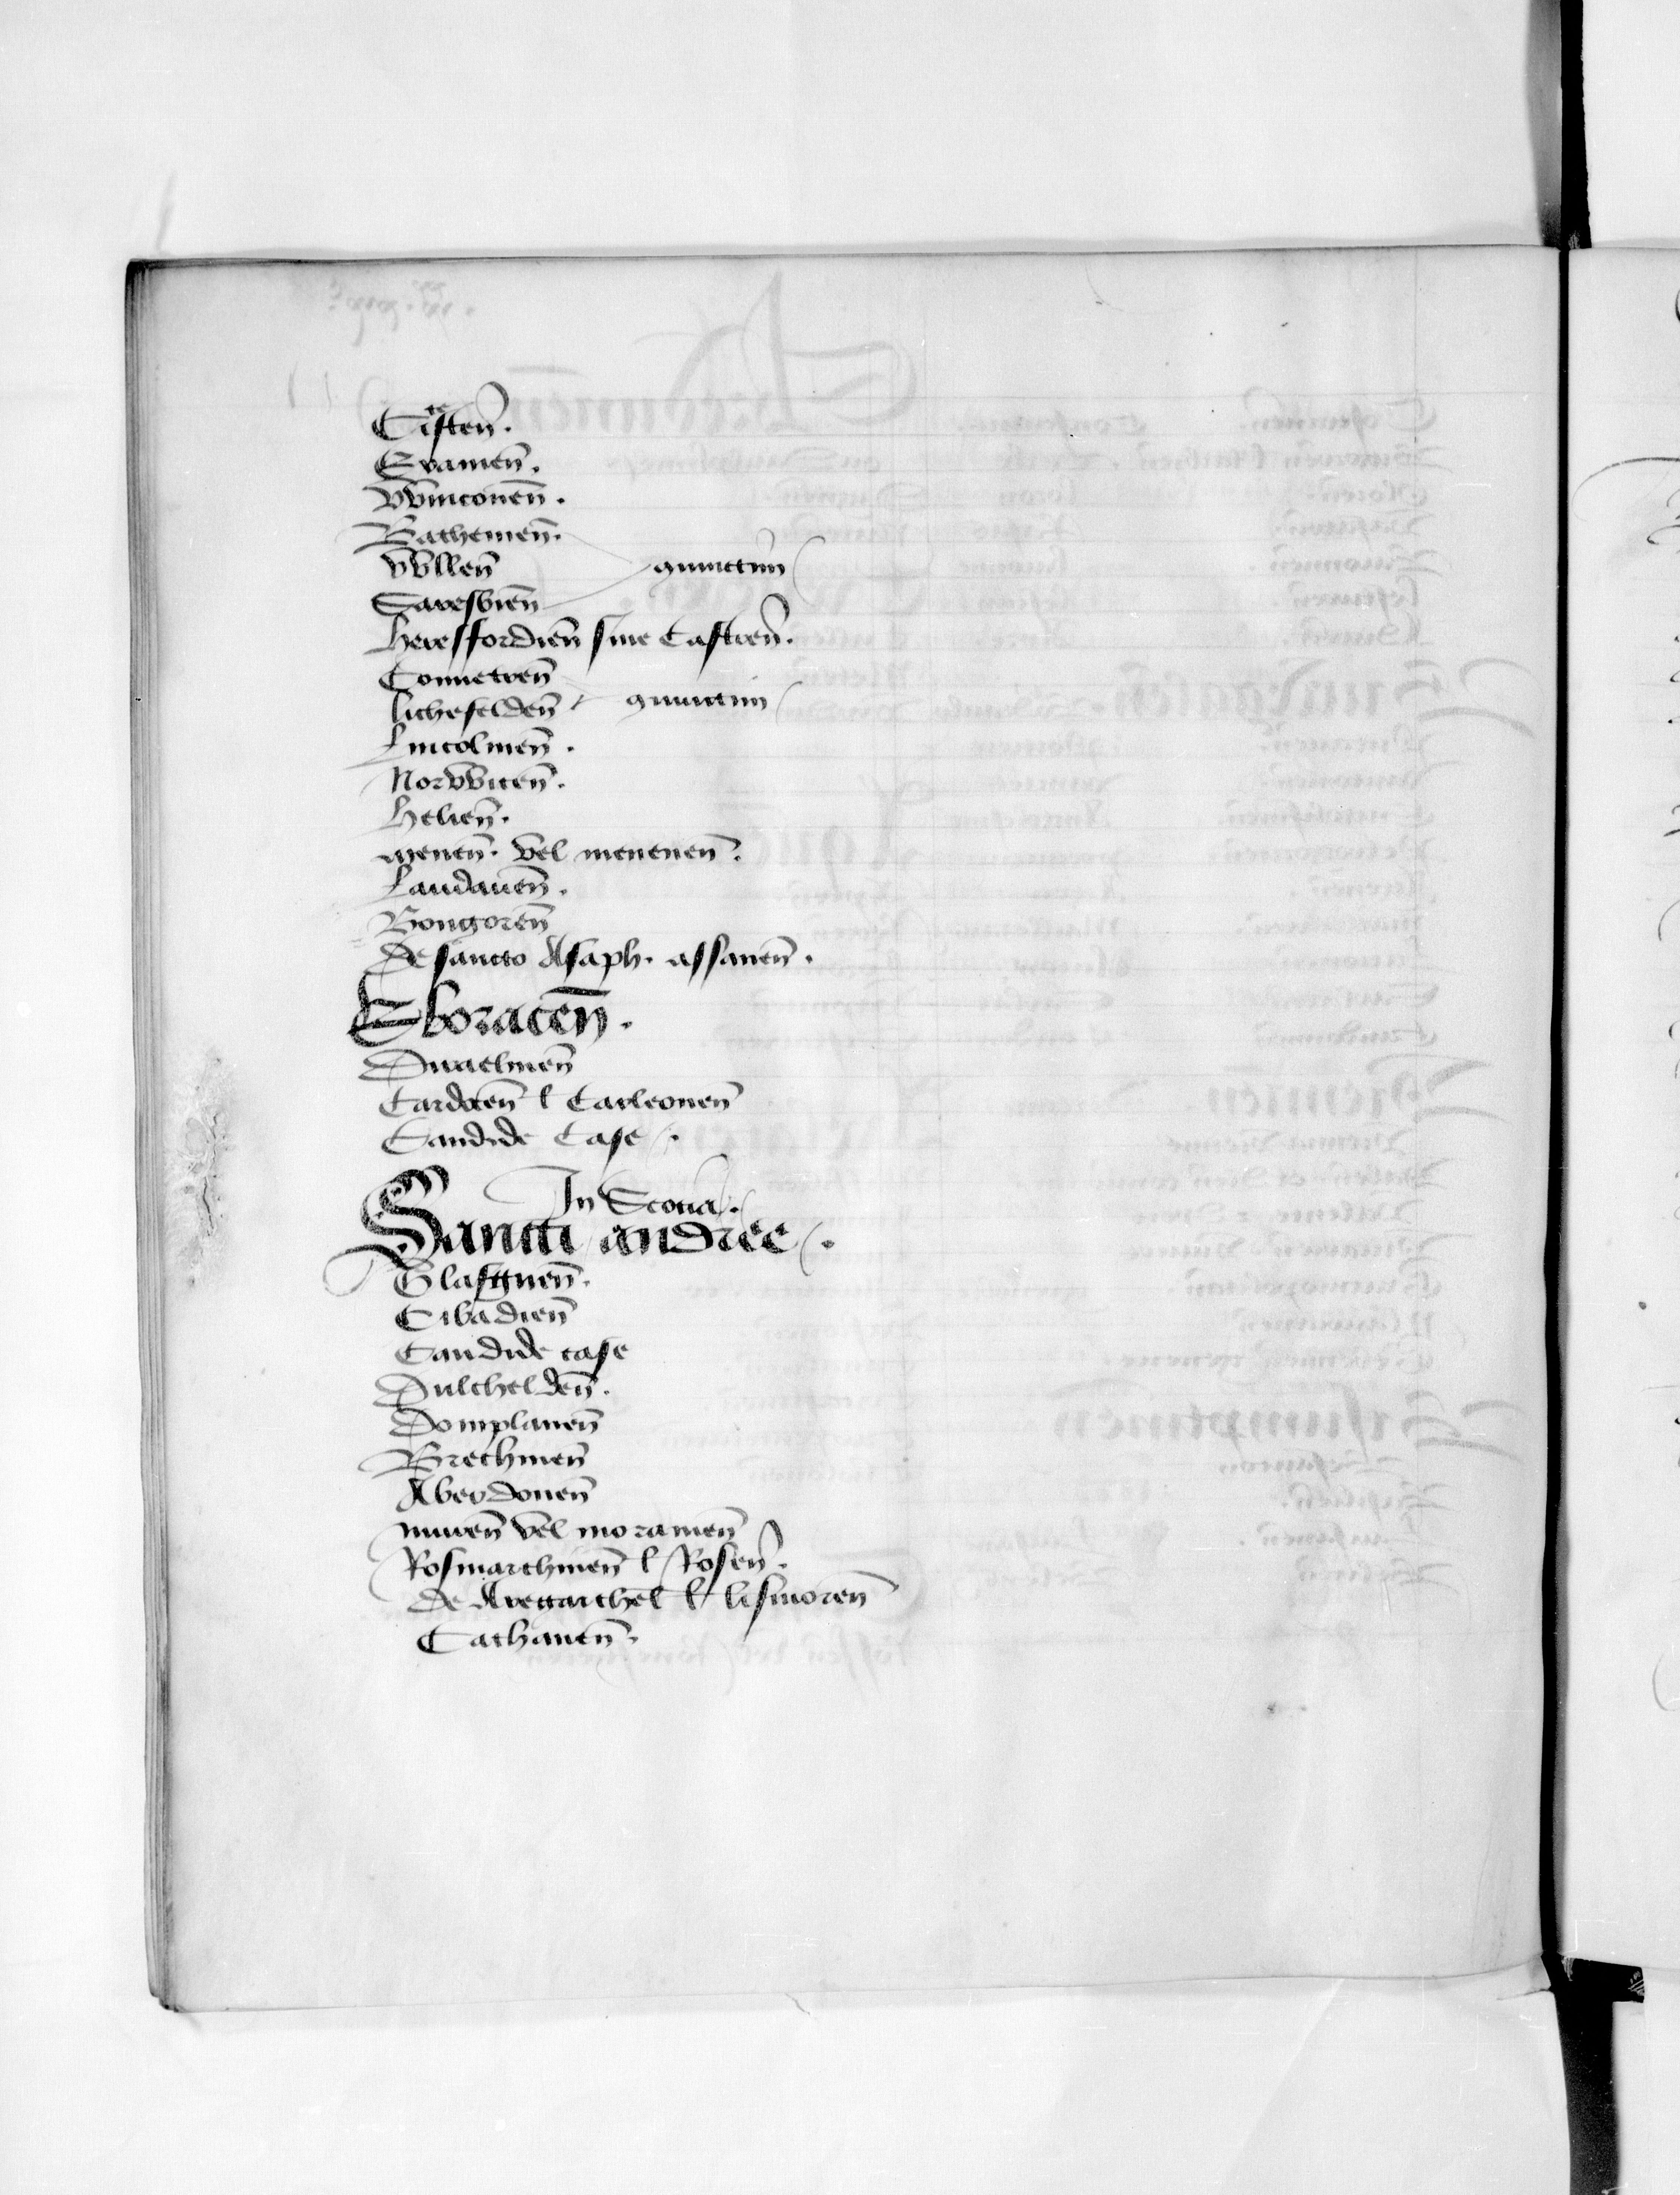 Cistren̄.
Exanien̄.
VVintonien̄.
Bathonien̄.
VVllen̄ coniunctim
Saresbien̄
Hereffordien̄ sine Castren̄.
Conuetren̄
lichefelden̄ coniunctim
Lincolnien̄.
NorVVicen̄.
Helien̄.
menen̄. vel meneuen̄.
Landauen̄.
Bongoren̄
De sancto Asaph. assauen̄.
Eboracen̄.
Duaelmen̄
Cardocen̄ l Carleonen̄
Candide Case.
In Scotia.
Sancti andree.
Glasguen̄.
Cibadien̄
Candide case
Dulchelden̄.
Domplanen̄
Brechinen̄
Aberdonen̄
muren̄ vel moranien̄
Rosmarchinen̄ l Rosen̄.
de Aregarthel l lismoren̄
Cathanen̄.